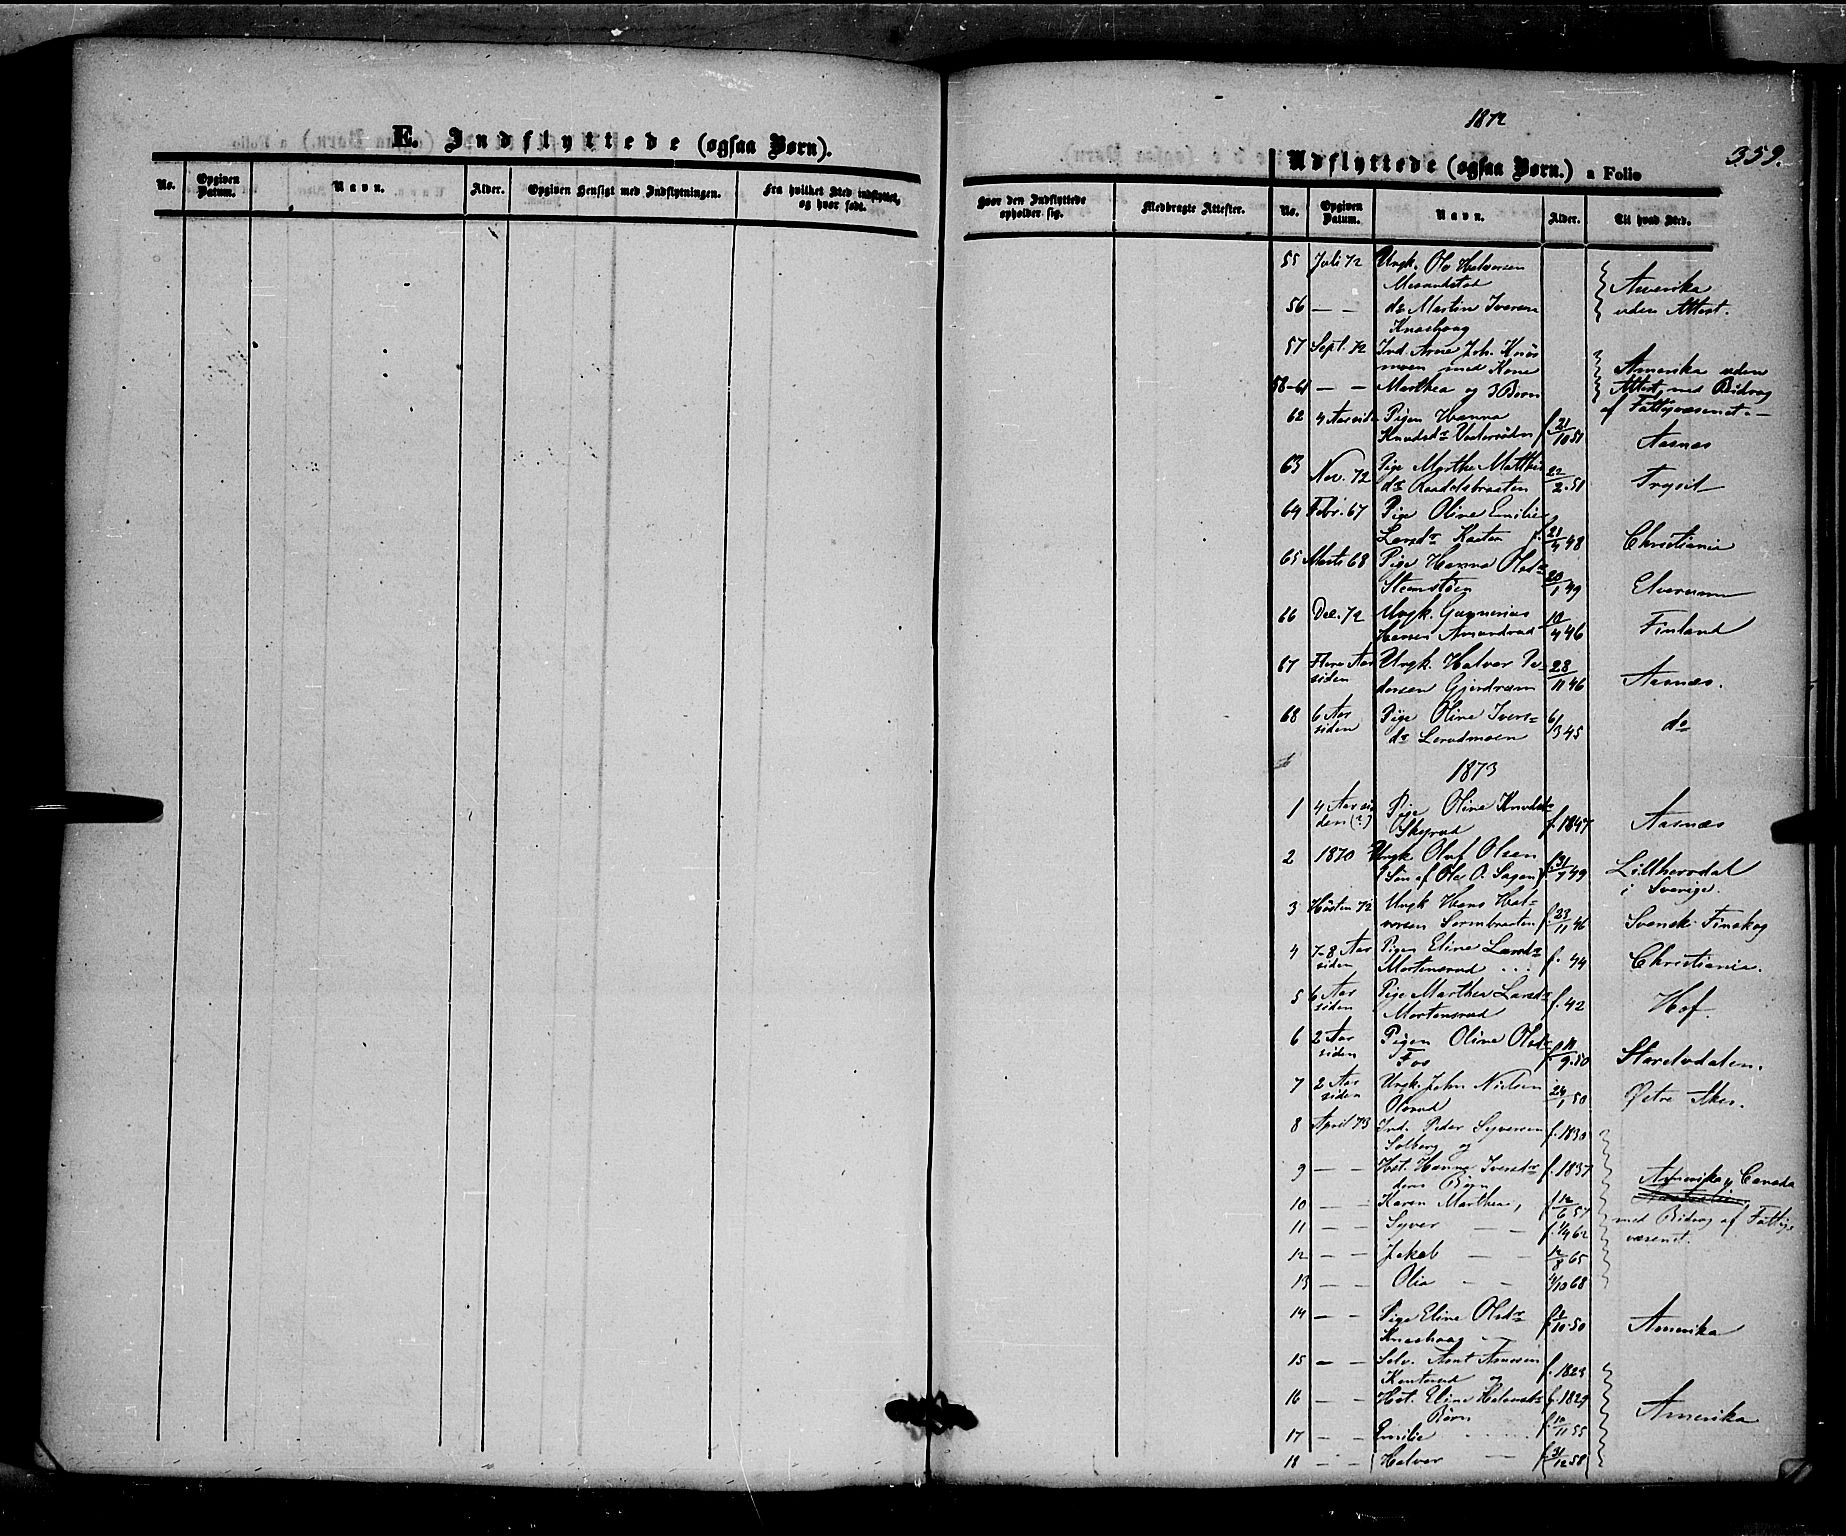 E. Indflyttede (ogsaa Børn).
No. Opgiven Datum. Navn. Alder. Opgiven Hensigt med Indflytningen. Fra hvilket Sted indflyttet, og hvor født.
1872
359.
Udflyttede (ogsaa Børn.) a Folio
Hvor den Indflyttede opholder sig. Medbragte Attester. No. Opgiven Datum. Navn. Alder. Til hvad Sted.
55 Juli 72 Ungk. Ole Halvorsen
Amerika
56 — — do Martin Iversen
uden Attest.
Knashaug
57 Sept. 72 Ind. Arne Joh.
moen med Kone
Amerika uden
58-61 — — Marthea og 3 Børn
Attest, med Bidrag
af Fattigvæsenet. —
62 4 Aar sid. Pigen Hanna
Knudsdr f. 21/10 51 Aasnæs
63 Nov. 72 Pige Marthe Matthis
dr 22/2 51 Trysil
64 Febr. 67 Pige Oline Emilie
Larsdr f. 21/4 48 Christiania
65 Marts 68 Pige Hanna Olsdr
20/1 49 Elverum
66 Dec. 72 Ungk. Gunerius
Hansen Amundrud 10/4 46 Finland
67 Flere Aar siden Ungk. Halvor Pe-
dersen Gjerdrum 28/11 46 Aasnæs.
68 6 Aar siden Pige Oline Ivers-
dr 6/3 45 do
1873
1 4 Aar si den (?) Pige Oline Knudsdr
Skyrud f. 1847 Aasnæs
2 1870 Ungk. Oluf Olsen
(Søn af Ole O. Sagen) 49 Lillherrdal
i Sverige.
3 Høsten 72 Ungk Hans Hal-
vorsen f. 23/11 46 Svensk Finskog
4 7-8 Aar siden Pigen Eline Larsdr
Mortensrud . . . f. 44 Christiania.
5 6 Aar siden Pige Marthea Larsdr
Mortensrud f. 42 Hof.
6 2 Aar siden Pigen Oline Olsdr
Fos f. 11/9 50
7 2 Aar siden Ungk. John Nielsen
Olsrud 24/1 50 Østre Aker.
8 April 73 Ind. Peder Syversen
Solberg og f. 1830
9 — — Hst. Hanna Iversdr f. 1837
deres Børn
Amerika, Canada
10 — — Karen Marthea, f. 12/6 57
med Bidrag af Fattig
11 — — Syver — — f. 1/9 62
væsenet.
12 — — Jakob — 12/8 65
13 — — Olia — — 4/10 68
14 — — Pige Eline Olsdr
Knashaug — 50 Amerika
15 — — Selv. Arnt Arnesen
og f. 1823
16 — — Hst. Eline Halvorsdr f. 1829
Børn
Amerika
17 — — Emilie . . . . f. 10/11 55
18 — — Halvor — — f. 31/12 58